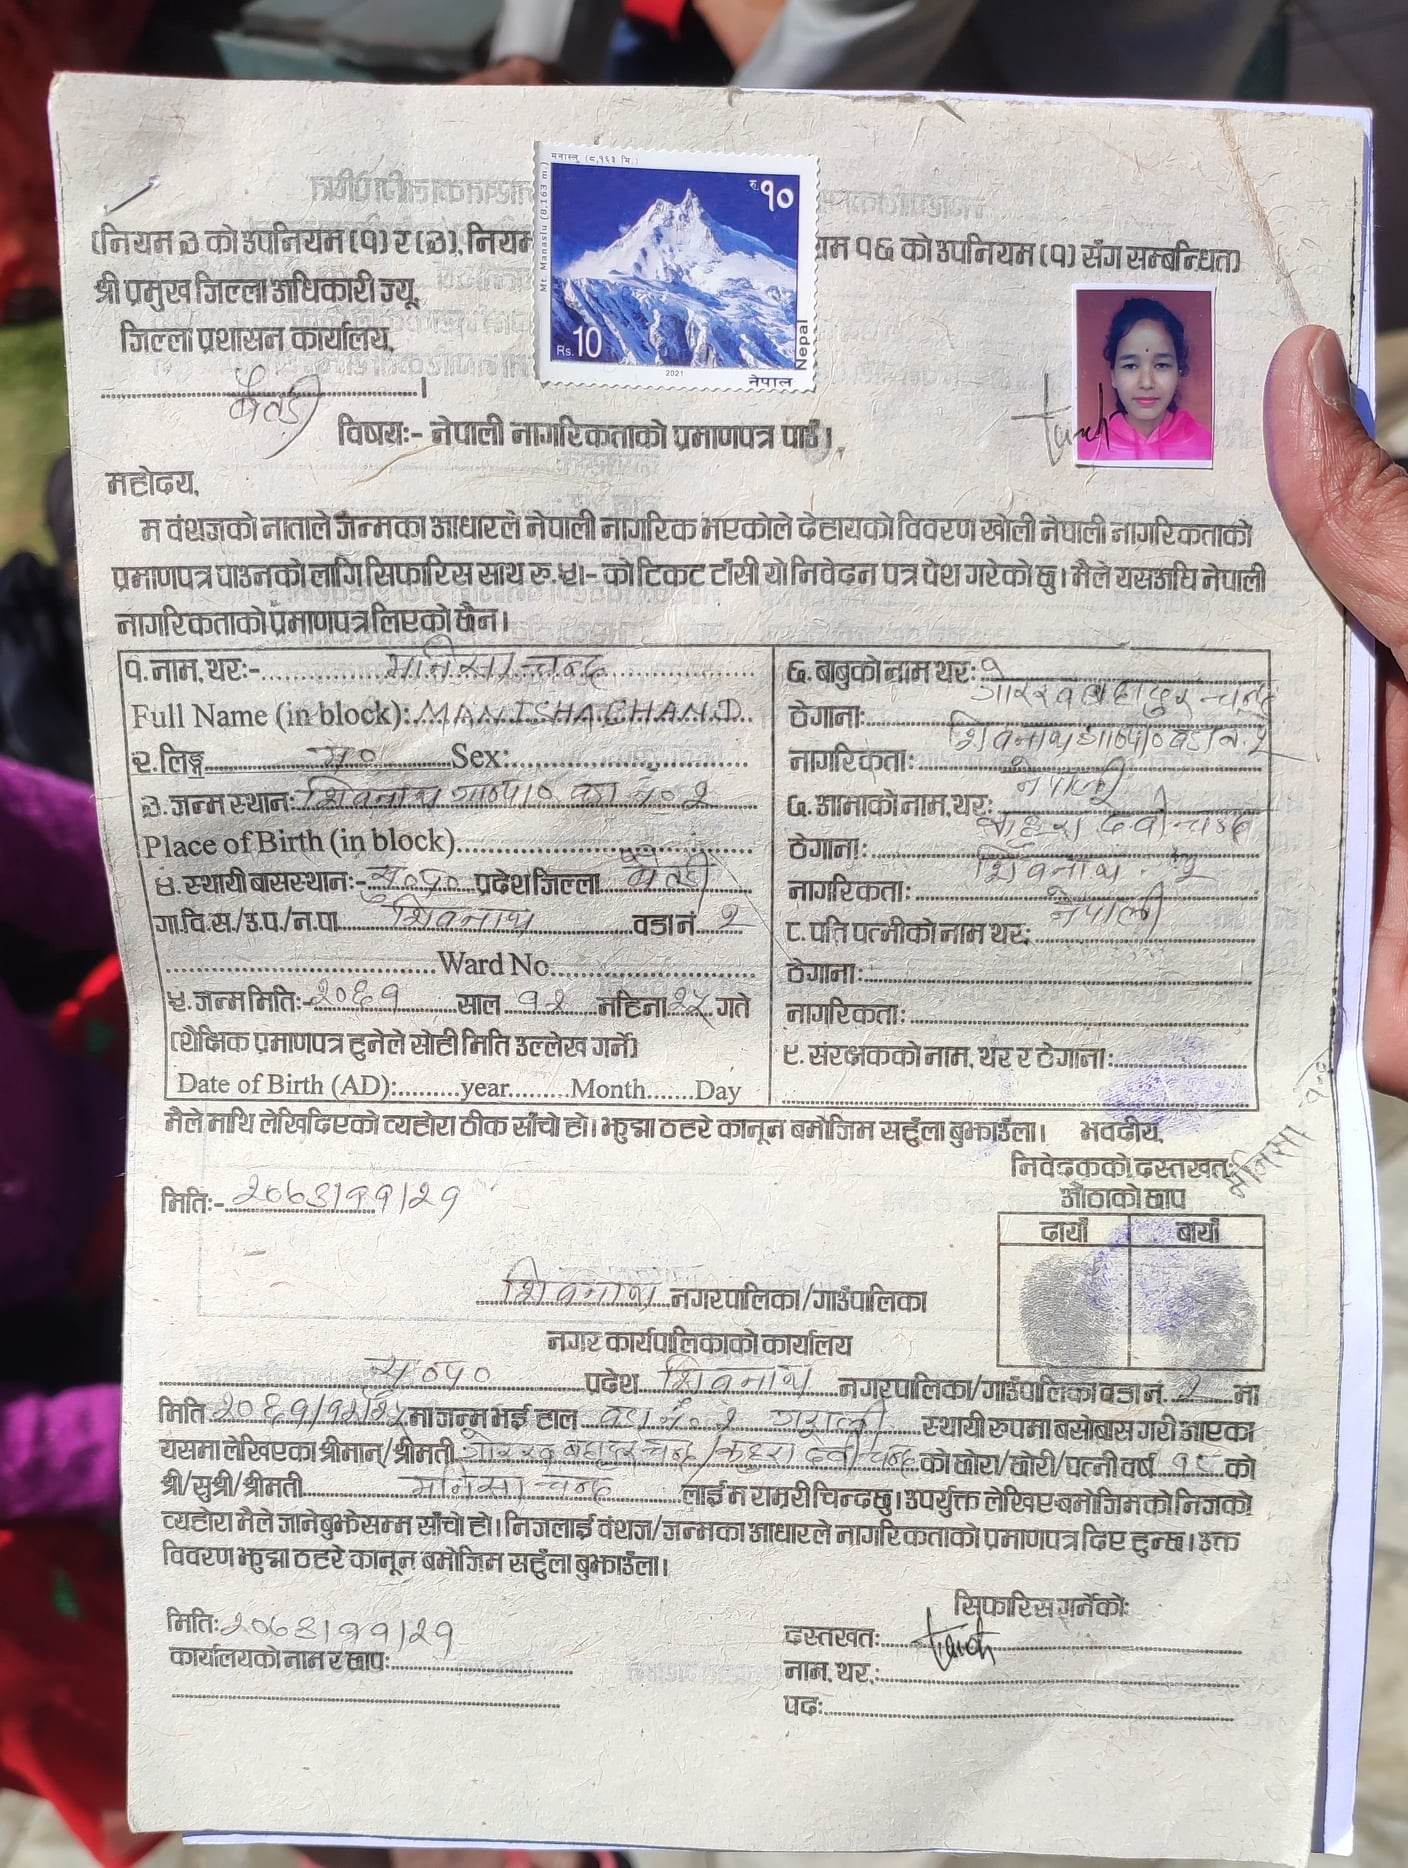 मनास्लु (८,१६३ मि.)
Mt. Manaslu (8,163 m.)
रु.१०
Rs.10
2021
नेपाल Nepal
(नियम ३ को उपनियम (१) र (३), नियम
यम १६ को उपनियम (१) सँग सम्बन्धित)
श्री प्रमुख जिल्ला अधिकारी ज्यू,
जिल्ला प्रशासन कार्यालय,
बैतडी ।
विषयः- नेपाली नागरिकताको प्रमाणपत्र पाउँ।
महोदय,
म वंशजको नाताले जन्मका आधारले नेपाली नागरिक भएकोले देहायको विवरण खोली नेपाली नागरिकताको
प्रमाणपत्र पाउनको लागि सिफारिस साथ रु.५।- को टिकट टाँसी यो निवेदन पत्र पेश गरेको छु। मैले यसअघि नेपाली
नागरिकताको प्रमाणपत्र लिएको छैन।
१. नाम, थरः- मनिसा चन्द
Full Name (in block): MANISHA CHAND
२. लिङ्ग म० Sex:
३. जन्म स्थानः शिवनाथ गा०पा० वडा नं० २
Place of Birth (in block)
४. स्थायी बासस्थानः- सु०प० प्रदेश जिल्ला बैतडी
गा.वि.स./उ.प./न.पा. शिवनाथ वडा नं. २
Ward No.
५. जन्म मितिः- २०६१ साल १२ महिना २५ गते
(शैक्षिक प्रमाणपत्र हुनेले सोही मिति उल्लेख गर्ने)
Date of Birth (AD): year Month Day
६. बाबुको नाम थरः
गोरख बहादुर चन्द
ठेगानाः शिवनाथ गा०पा० वडा नं. २
नागरिकताः नेपाली
७. आमाको नाम, थरः देवी चन्द
ठेगानाः शिवनाथ २
नागरिकताः नेपाली
८. पति पत्नीको नाम थरः
ठेगानाः
नागरिकताः
९. संरक्षकको नाम, थर र ठेगानाः
मैले माथि लेखिदिएको व्यहोरा ठीक साँचो हो। झुट्टा ठहरे कानून बमोजिम सहुँला बुझाउँला। भवदीय,
निवेदकको दस्तखतः मनिसा चन्द
औंठाको छाप
दायाँ बायाँ
मितिः- २०७९।११।२१
शिवनाथ नगरपालिका/गाउँपालिका
नगर कार्यपालिकाको कार्यालय
सु०प० प्रदेश शिवनाथ नगरपालिका/गाउँपालिका वडा नं. २ मा
मिति २०६१/१२/२५ मा जन्म भई हाल वडा नं. २ स्थायी रुपमा बसोबास गरी आएका
यसमा लेखिएका श्रीमान्/श्रीमती गोरख बहादुर चन्द / देवी चन्द को छोरा/छोरी/पत्नी वर्ष १८ को
श्री/सुश्री/श्रीमती मनिसा चन्द लाई म राम्ररी चिन्दछु। उपर्युक्त लेखिए बमोजिमको निजको
व्यहोरा मैले जानेबुझेसम्म साँचो हो। निजलाई वंशज/जन्मका आधारले नागरिकताको प्रमाणपत्र दिए हुन्छ। उक्त
विवरण झुट्टा ठहरे कानून बमोजिम सहुँला बुझाउँला।
सिफारिस गर्नेकोः
मितिः २०७९।११।२१
दस्तखतः
कार्यालयको नाम र छापः
नाम, थर,:
पदः